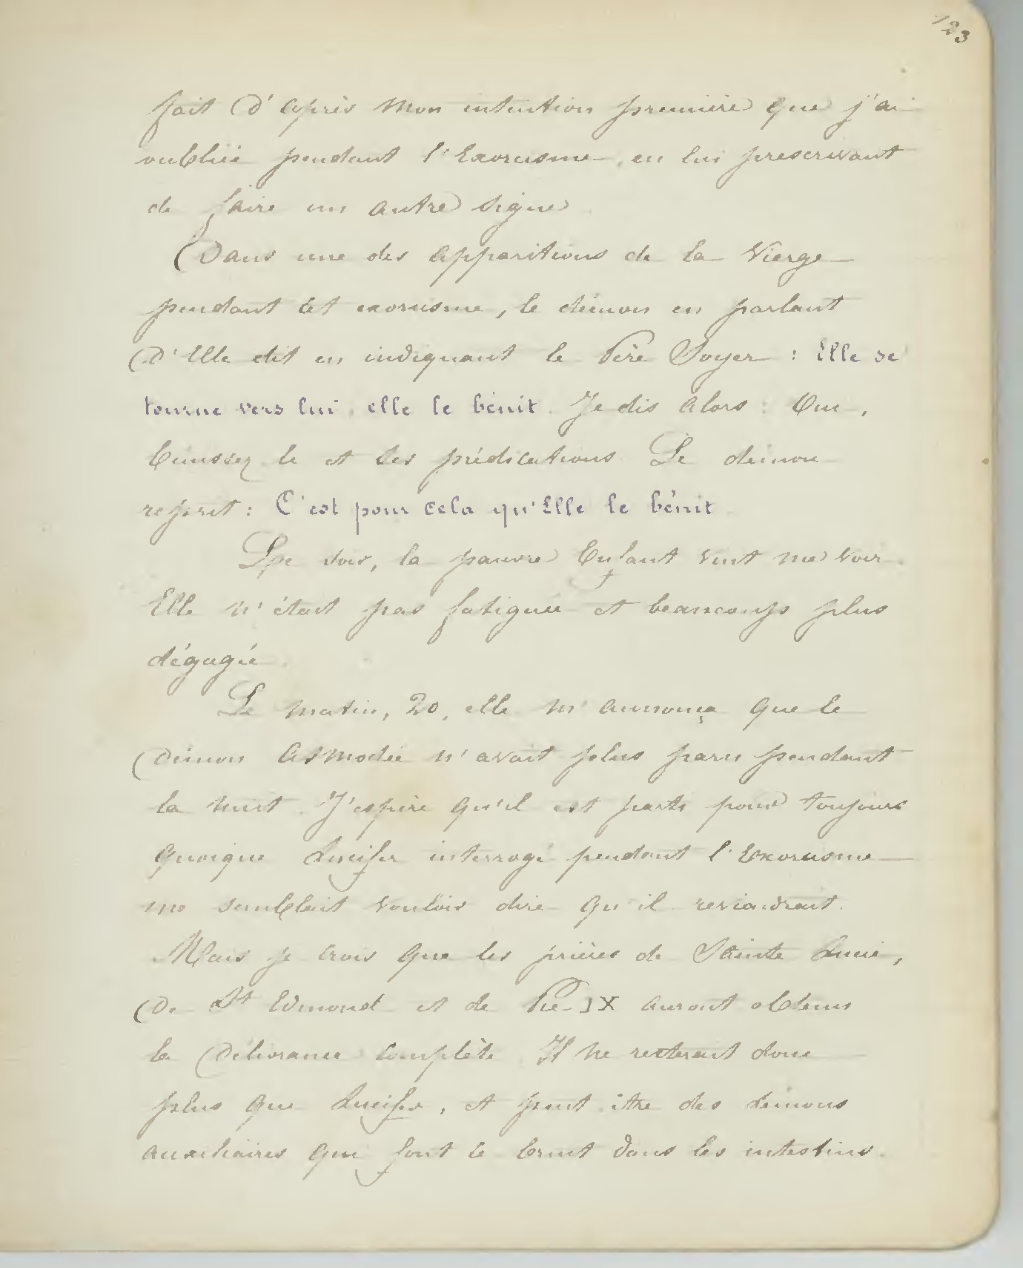 123
fait d'après mon intuition première que j'ai
oubliée pendant l'Exorcisme, en lui prescrivant
de faire un autre signe
Dans une des apparitions de la Vierge
pendant cet exorcisme, le démon en parlant
d'Elle dit en indiquant le Père Soyer : Elle se
tourne vers lui, elle le bénit. Je dis alors : Oui,
bénissez le et ses prédications. Le démon
reprit : C'est pour cela qu'Elle le bénit.
Le soir, la pauvre Enfant vint me voir.
Elle n'était pas fatiguée et beaucoup plus
dégagée.
Le matin, 20, elle m'annonça que le
démon Asmodée n'avait plus paru pendant
la nuit. J'espère qu'il est parti pour toujours
quoique Lucifer interrogé pendant l'Exorcisme
me semblait vouloir dire qu'il reviendrait.
Mais je crois que les prières de Sainte Lucie,
de St Edmond et de Pie IX auront obtenu
la délivrance complète. Il ne resterait donc
plus que Lucifer, et peut être des démons
auxiliaires qui font le bruit dans les intestins.